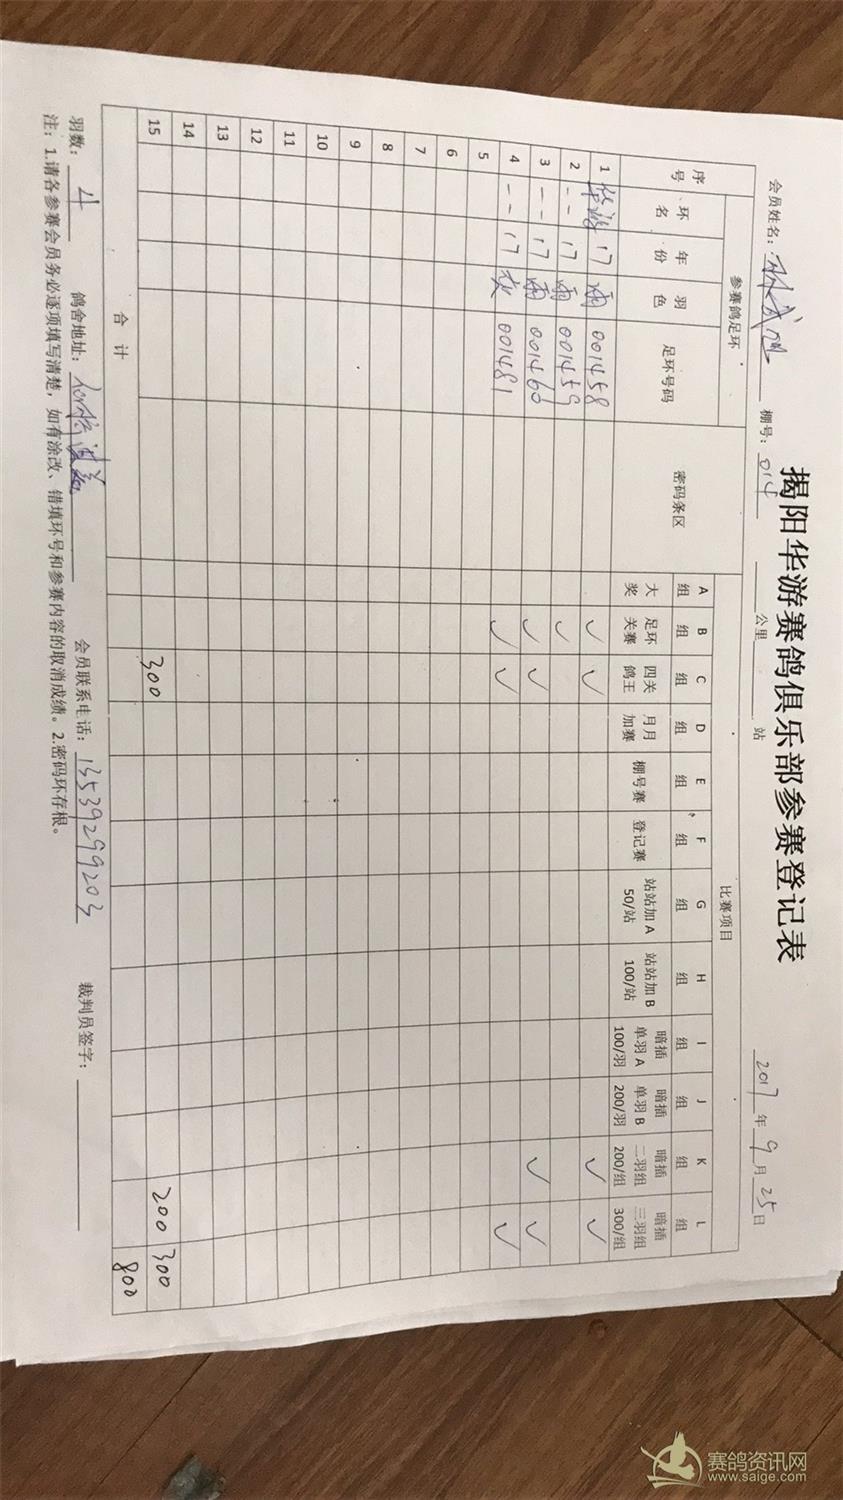 揭阳华游赛鸽俱乐部参赛登记表
会员姓名： 棚号：014 公里 站 2017年9月25日
序号 参赛鸽足环 密码条区 比赛项目
环名 年份 羽色 足环号码 A组 B组 C组 D组 E组 F组 G组 H组 I组 J组 K组 L组
大奖 足环关赛 四关鸽王 月月加赛 棚号赛 登记赛 站站加A 50/站 站站加B 100/站 暗插单羽A 100/羽 暗插单羽B 200/羽 暗插二羽组 200/组 暗插三羽组 300/组
1 华游 17 雨 001458 ✓ ✓ ✓ ✓
2 -- 17 雨 001459 ✓
3 -- 17 雨 001460 ✓ ✓ ✓ ✓
4 -- 17 灰 001481 ✓ ✓ ✓
5
6
7
8
9
10
11
12
13
14
15 300 200 300
合计 800
羽数：4 鸽舍地址： 会员联系电话：13539299203 裁判员签字：
注：1.请各参赛会员务必逐项填写清楚，如有涂改、错填环号和参赛内容的取消成绩。2.密码环存根。
赛鸽资讯网
www.saige.com